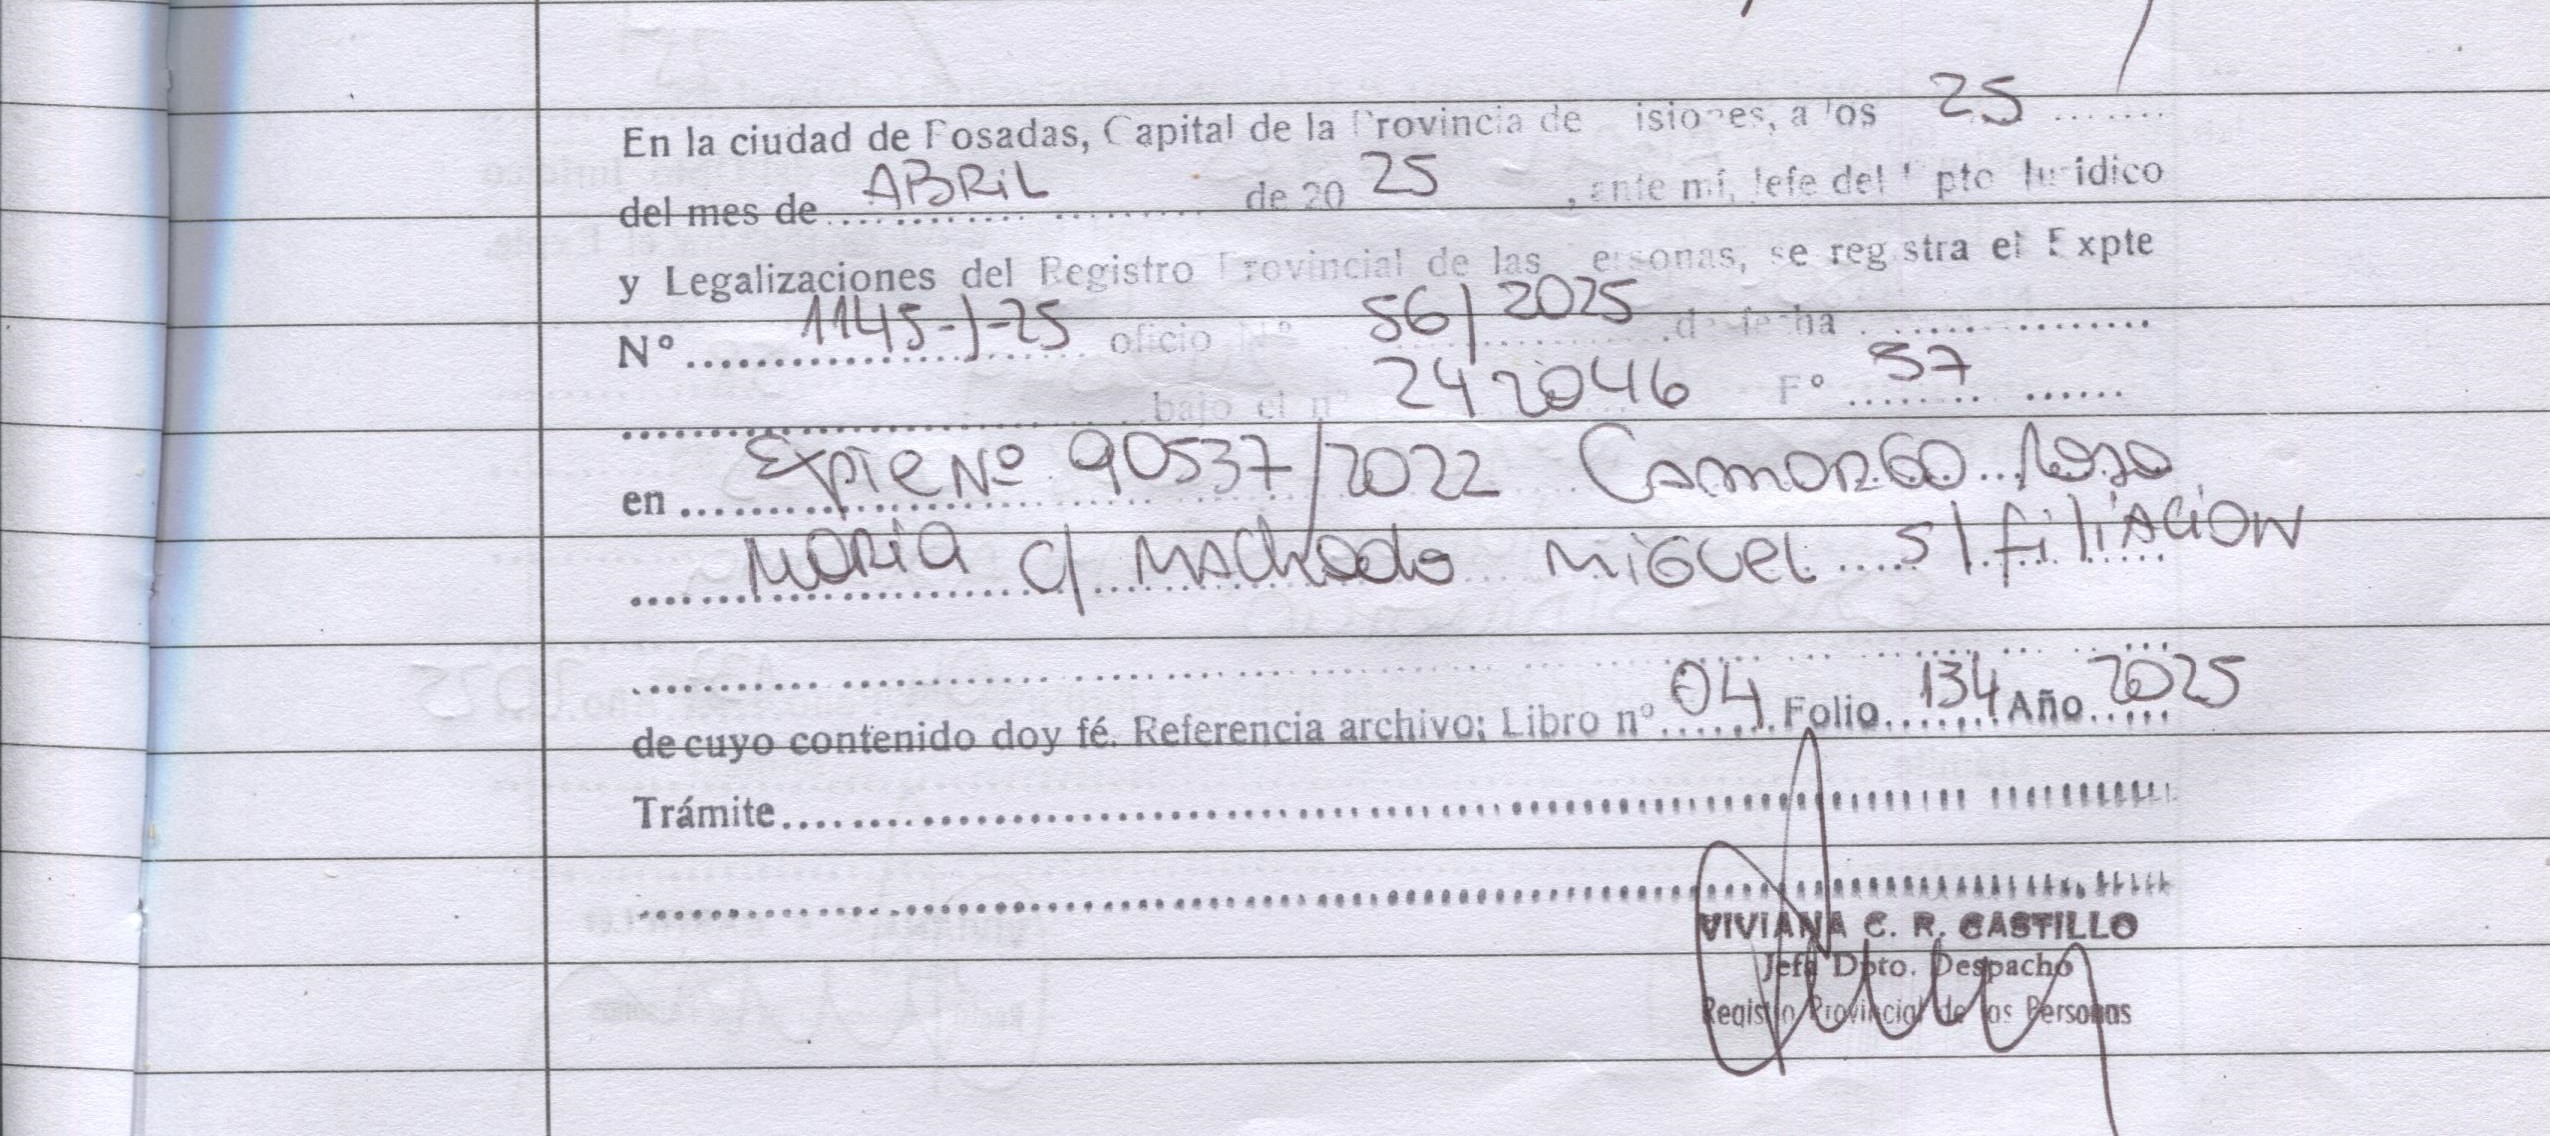 En la ciudad de Posadas, Capital de la Provincia de Misiones, a los 25
del mes de ABRiL de 20 25, ante mí, Jefe del Dpto Jurídico
y Legalizaciones del Registro Provincial de las Personas, se registra el Expte
Nº 1145-J-25 oficio Nº 56/2025 de fecha
bajo el nº 242046 Fº 37
en Expte Nº 90537/2022 CAMARGO Rosa
MARiA c/ MAChado MiGUel s/ filiACiON
de cuyo contenido doy fé. Referencia archivo: Libro nº 04 Folio 134 Año 2025
Trámite
VIVIANA C. R. CASTILLO
Jefa Dpto. Despacho
Registro Provincial de las Personas